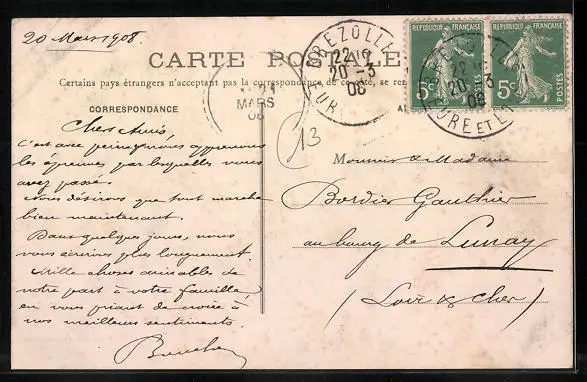 20 Mars 1908.
CARTE POSTALE
Certains pays étrangers n'acceptant pas la correspondance de ce côté, se
CORRESPONDANCE
REPUBLIQUE FRANÇAISE
5c
REPUBLIQUE FRANÇAISE
5c
BREZOLLES
22 15
20 -3
08
EURE ET L
22 15
20 -3
08
EURE ET L
21
MARS
08
13
Chers Amis,
C'est avec peine que nous apprenons
les épreuves par lesquelles vous
avez passé.
Nous désirons que tout marche
bien maintenant.
Dans quelques jours, nous
vous écrirons plus longuement.
Mille choses aimables de
notre part à votre famille
en vous priant de croire à
nos meilleurs sentiments.
Monsieur & Madame
Bordier Gauthier
au bourg de Lunay
(Loir & Cher)